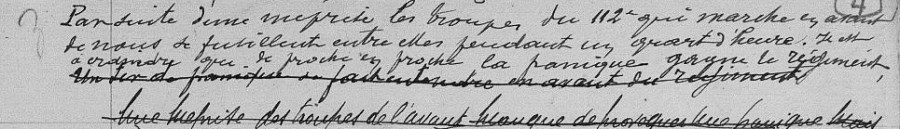 4
Par suite d'une méprise les troupes du 112e qui marche en avant
de nous se fusillent entre elles pendant un quart d'heure. Il est
à craindre que de proche en proche la panique gagne le régiment,
Un tir de panique se fait entendre en avant du régiment
Une méprise des troupes de l'avant manque de provoquer une panique mais